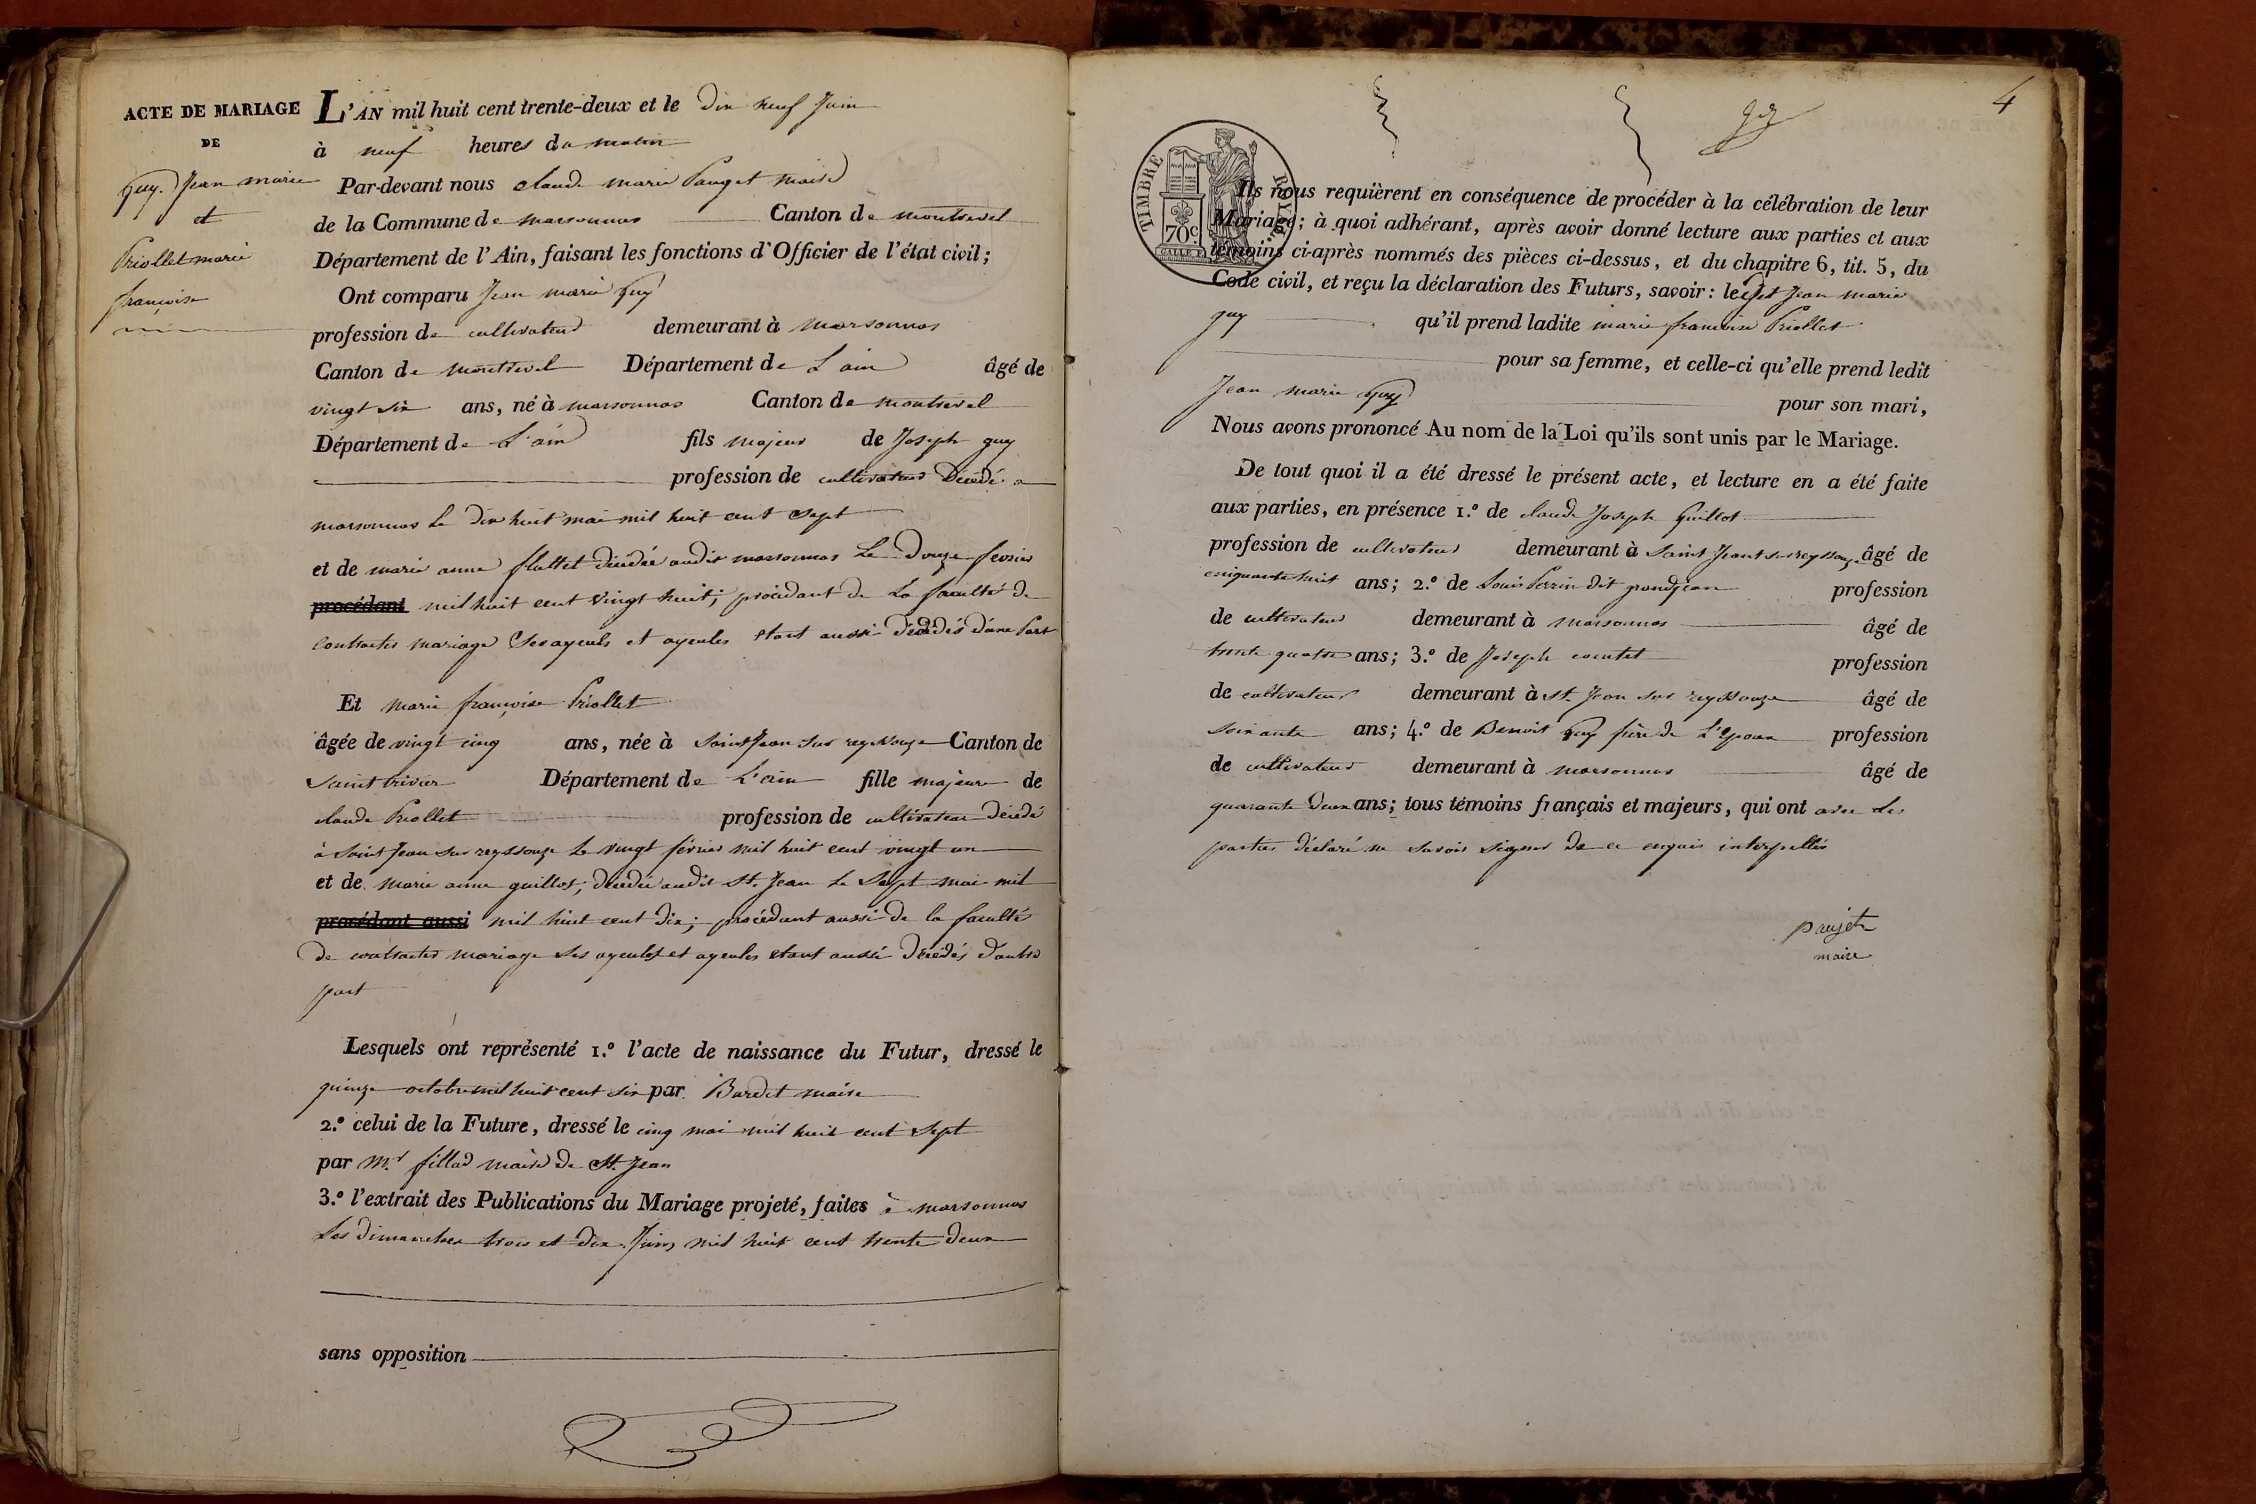 ACTE DE MARIAGE
DE
Guy. Jean marie
et
Priollet marie
françoise
L'AN mil huit cent trente-deux et le dix neuf Juin
à neuf heures du matin
Par-devant nous claude marie Pauget maire
de la Commune de marsonnas Canton de montrevel
Département de l'Ain, faisant les fonctions d'Officier de l'état civil;
Ont comparu Jean marie Guy
profession de cultivateur demeurant à marsonnas
Canton de montrevel Département de L'ain âgé de
vingt six ans, né à marsonnas Canton de montrevel
Département de L'ain fils majeur de Joseph guy
profession de cultivateur Décédé a
marsonnas le dix huit mai mil huit cent sept
et de marie anne fluttet décédée audit marsonnas Le Douze fevrier
procédant mil huit cent vingt huit; procédant de La faculté de
contracter mariage Ses ayeuls et ayeules etant aussi décédés d'une Part
Et marie françoise Priollet
âgée de vingt cinq ans, née à Saint Jean sur reyssouze Canton de
Saint trivier Département de L'ain fille majeure de
claude Priollet profession de cultivateur décédé
à Saint Jean sur reyssouze le vingt février mil huit cent vingt un
et de marie anne guillot, décédée audit St. Jean le Sept mai mil
procédant aussi mil huit cent dix; procédant aussi de la faculté
de contracter mariage ses ayeuls et ayeules etant aussi décédés d'autre
part
Lesquels ont représenté 1.º l'acte de naissance du Futur, dressé le
quinze octobre mil huit cent six par Bardet maire
2.º celui de la Future, dressé le cinq mai mil huit cent sept
par Mr. fillod maire de St. Jean
3.º l'extrait des Publications du Mariage projeté, faites à marsonnas
Les dimanches trois et dix Juin mil huit cent trente deux
sans opposition
4
TIMBRE ROYAL
70c
Ils nous requièrent en conséquence de procéder à la célébration de leur
Mariage; à quoi adhérant, après avoir donné lecture aux parties et aux
témoins ci-après nommés des pièces ci-dessus, et du chapitre 6, tit. 5, du
Code civil, et reçu la déclaration des Futurs, savoir: ledit Jean marie
guy qu'il prend ladite marie françoise Priollet
pour sa femme, et celle-ci qu'elle prend ledit
Jean marie Guy pour son mari,
Nous avons prononcé Au nom de la Loi qu'ils sont unis par le Mariage.
De tout quoi il a été dressé le présent acte, et lecture en a été faite
aux parties, en présence 1.º de claude Joseph Guillot
profession de cultivateur demeurant à Saint Jean sur reyssouze âgé de
cinquante huit ans; 2.º de Louis Perrin dit grandjean profession
de cultivateur demeurant à marsonnas âgé de
trente quatre ans; 3.º de Joseph profession
de cultivateur demeurant à St. Jean sur reyssouze âgé de
soixante ans; 4.º de Benoit Guy frère de L'epoux profession
de cultivateur demeurant à marsonnas âgé de
quarante deux ans; tous témoins français et majeurs, qui ont avec les
parties déclaré ne savoir signer de ce enquis interpellés
paujet
maire